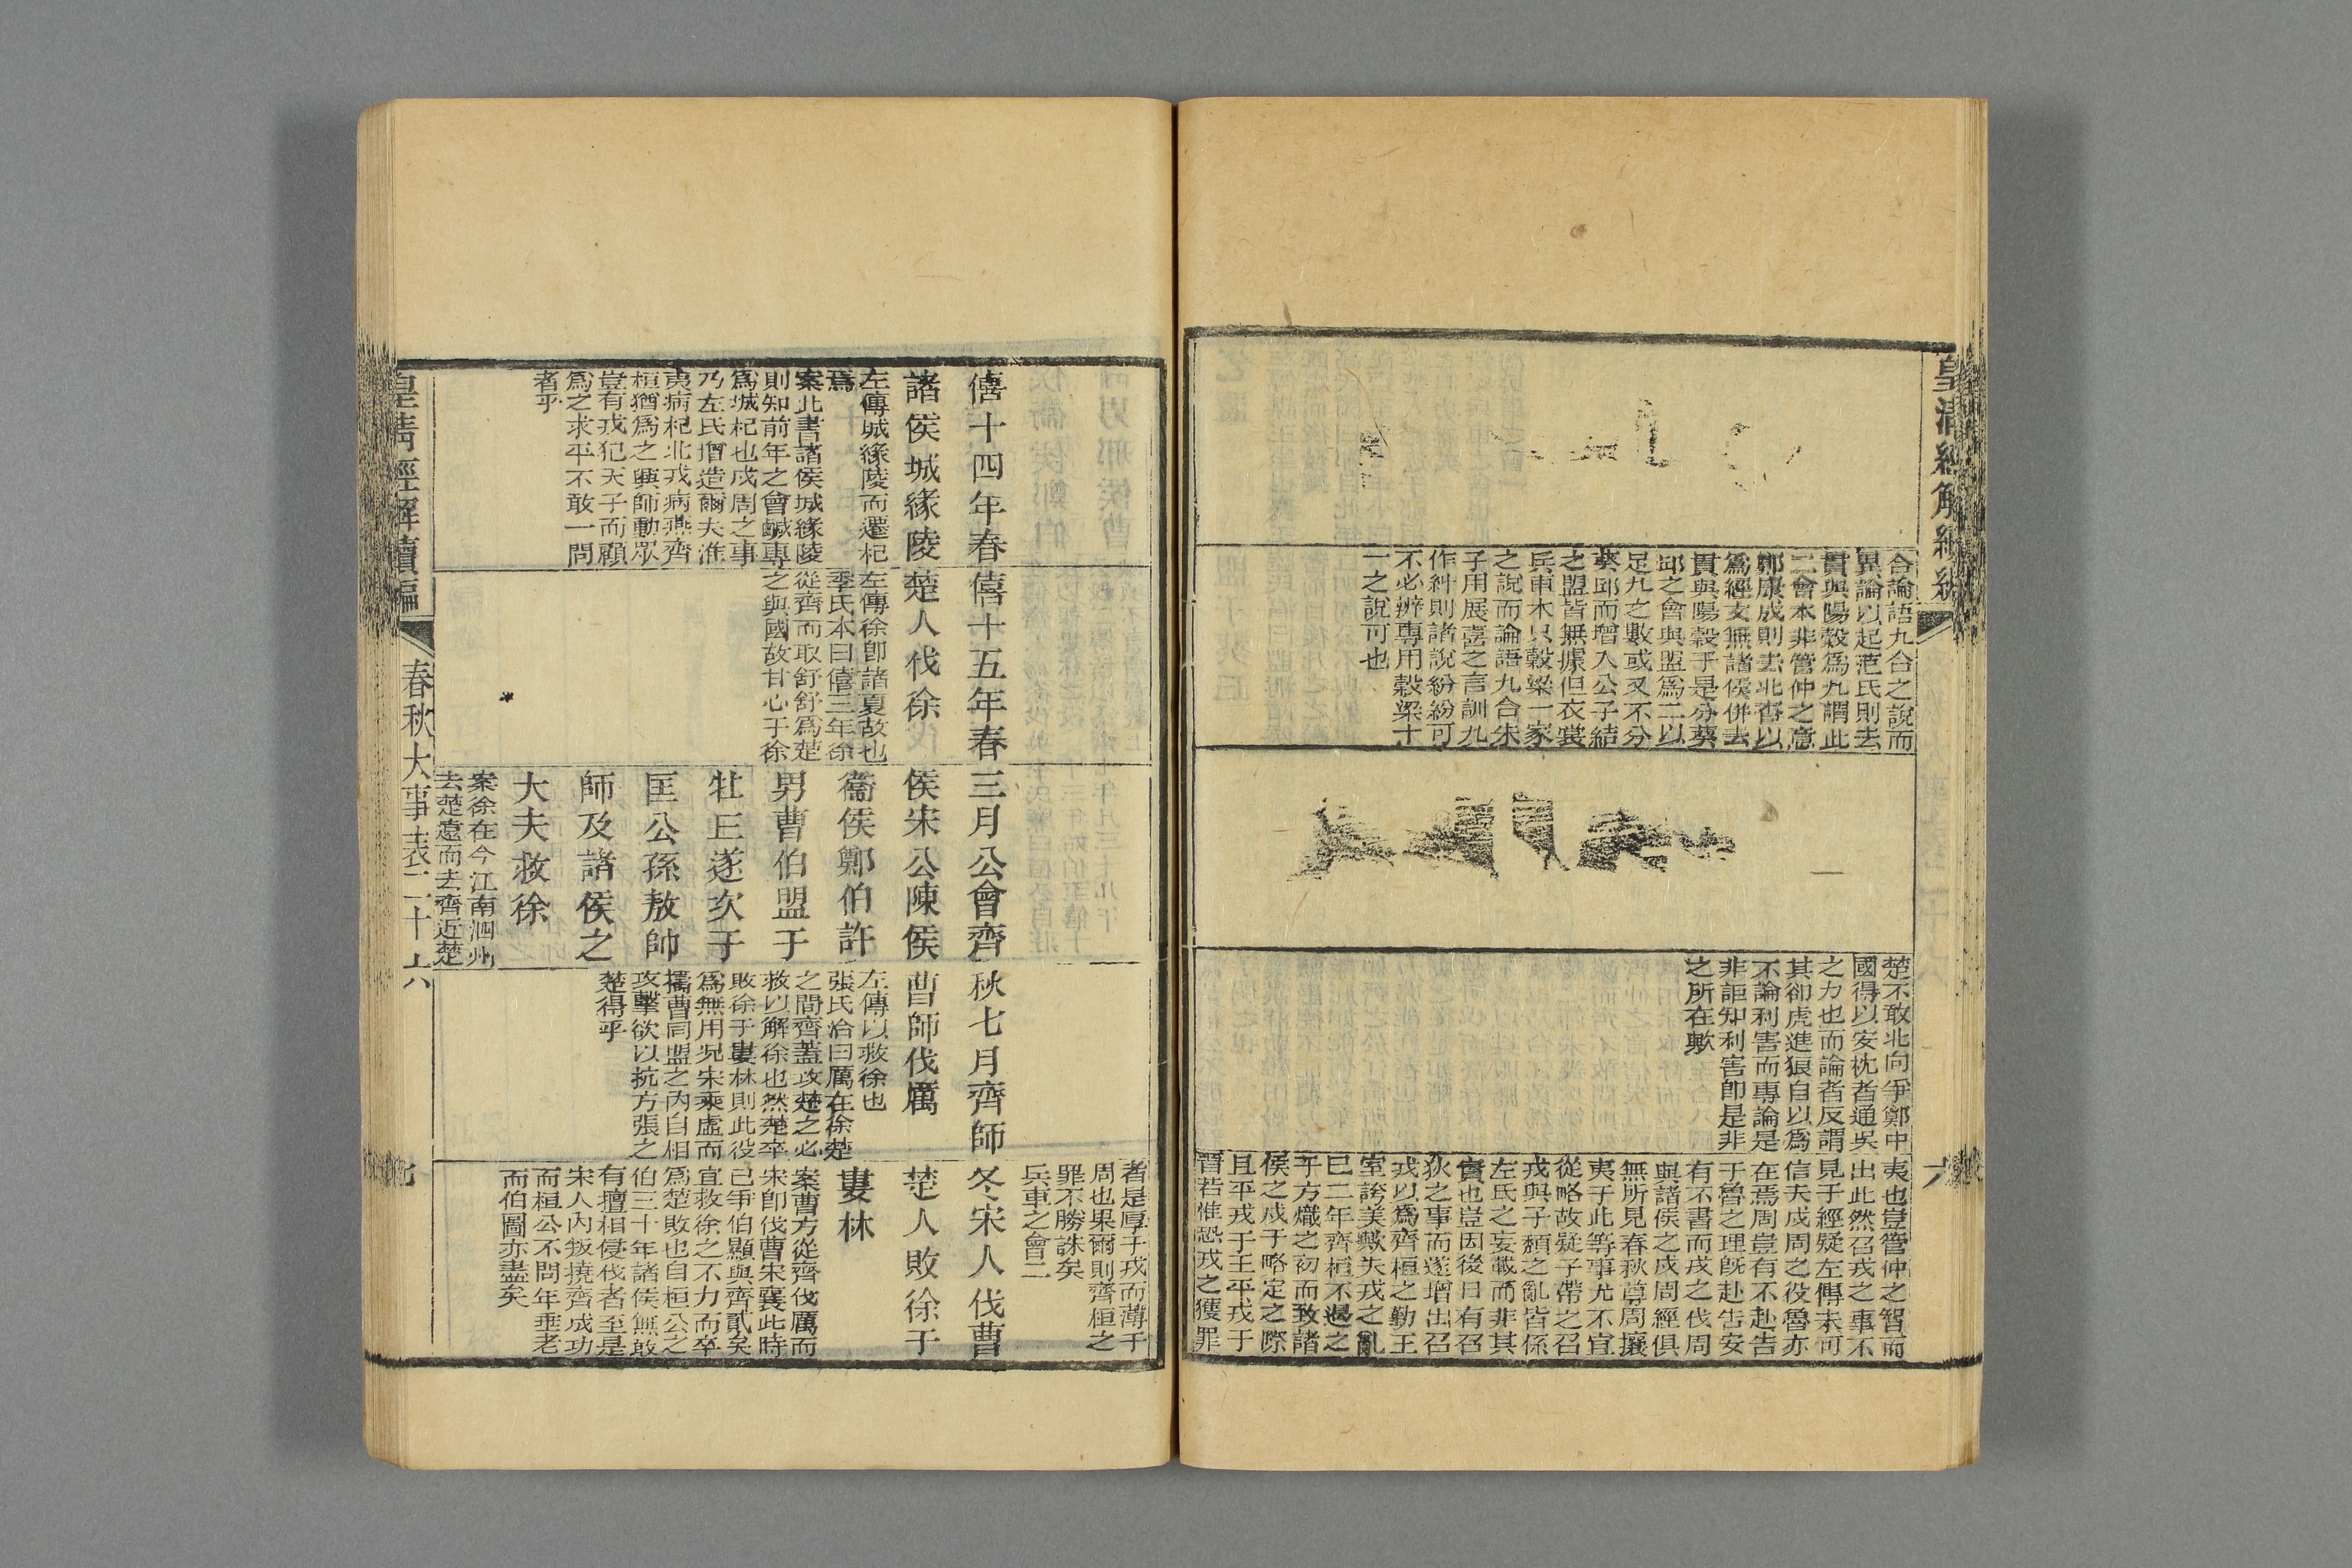 皇清經解續編
合論語九合之說而
異論以起范氏則去
貫與陽穀爲九謂此
二會本非管仲之意
鄭康成則去北杏以
爲經文無諸侯併去
貫與陽穀于是分葵
邱之會與盟爲二以
足九之數或又不分
葵邱而增入公子結
之盟皆無據但衣裳
兵車木只穀梁一家
之說而論語九合朱
子用展喜之言訓九
作糾則諸說紛紛可
不必辨專用穀梁十
一之說可也
楚不敢北向爭鄭中
國得以安枕者通吳
之力也而論者反謂
其卻虎進狼自以爲
不論利害而專論是
非詎知利害卽是非
之所在歟
夷也豈管仲之智而
出此然召戎之事不
見于經疑左傳未可
信夫戍周之役魯亦
在焉周豈有不赴告
于魯之理旣赴告安
有不書而戎之伐周
與諸侯之戍周經俱
無所見春秋尊周攘
夷于此等事尤不宜
從略故疑子帶之召
戎與子頹之亂皆係
左氏之妄載而非其
實也豈因後日有召
狄之事而遂增出召
戎以爲齊桓之勤王
室誇美歟夫戎之亂
已二年齊桓不遏之
于方熾之初而致諸
侯之戍于略定之際
且平戎于王平戎于
晉若惟恐戎之獲罪
六
者是厚于戎而薄于
周也果爾則齊桓之
罪不勝誅矣
兵車之會二
僖十四年春
諸侯城緣陵
左傳城緣陵而遷杞
焉
案此書諸侯城緣陵
則知前年之會鹹專
爲城杞也戍周之事
乃左氏增造爾夫淮
夷病杞北戎病燕齊
桓猶爲之興師動眾
豈有戎犯天子而顧
爲之求平不敢一問
者乎
僖十五年春
楚人伐徐
左傳徐卽諸夏故也
季氏本曰僖三年徐
從齊而取舒舒爲楚
之與國故甘心于徐
三月公會齊
侯宋公陳侯
衞侯鄭伯許
男曹伯盟于
牡丘遂次于
匡公孫敖帥
師及諸侯之
大夫救徐
案徐在今江南泗州
去楚遠而去齊近楚
秋七月齊師
曹師伐厲
左傳以救徐也
張氏洽曰厲在徐楚
之間齊蓋攻楚之必
救以解徐也然楚卒
敗徐于婁林則此役
爲無用況宋乘虛而
擣曹同盟之內自相
攻擊欲以抗方張之
楚得乎
冬宋人伐曹
楚人敗徐于
婁林
案曹方從齊伐厲而
宋卽伐曹宋襄此時
已爭伯顯與齊貳矣
宜救徐之不力而卒
爲楚敗也自桓公之
伯三十年諸侯無敢
有擅相侵伐者至是
宋人內叛撓齊成功
而桓公不問年垂老
而伯圖亦盡矣
皇清經解續編
春秋大事表二十六